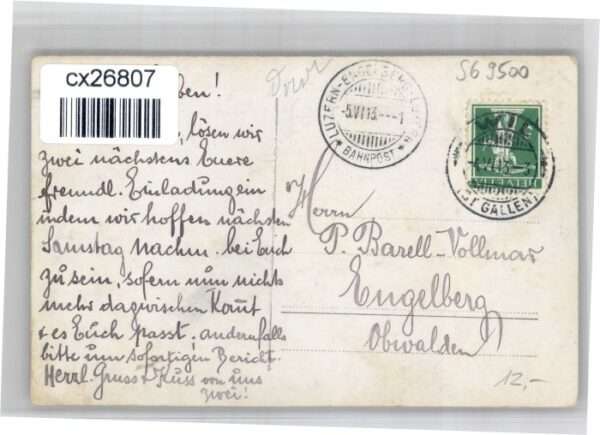 cx26807
ben!
lösen wir
zwei nächstens Euere
freundl. Einladung ein
indem wir hoffen nächsten
Samstag nachm. bei Euch
zu sein, sofern nun nichts
mehr dazwischen komt
& es Euch passt, andernfalls
bitte um sofortigen Bericht.
Herzl. Gruss & Kuss von uns
zwei!
LUZERN-ENGELBERG
5.VI.13.--1
BAHNPOST
S69500
WIL
(ST GALLEN)
HELVETIA
Herrn
P. Barell-Vollmar
Engelberg
Obwalden
12,-